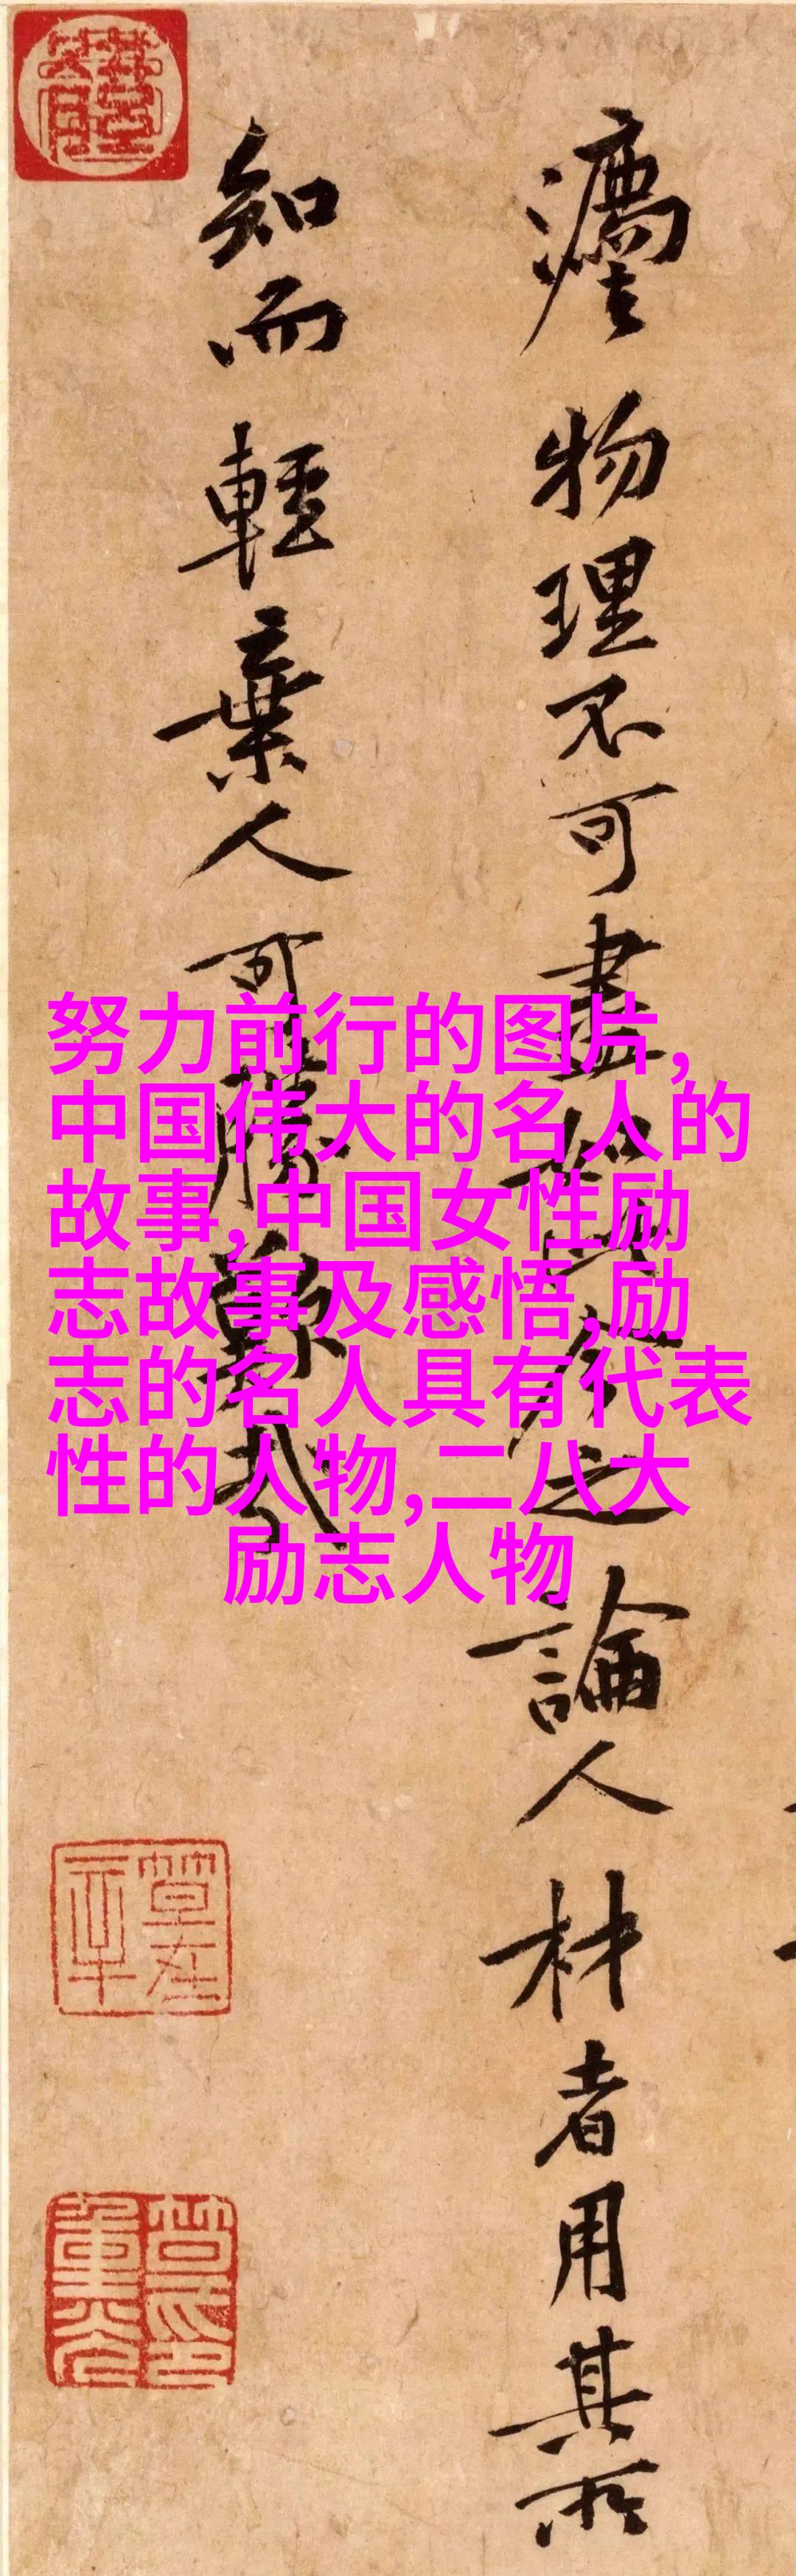 物理不可盡如此今之論人材者用其所
知而輕棄人可勝歎哉
努力前行的图片,
中国伟大的名人的
故事,中国女性励
志故事及感悟,励
志的名人具有代表
性的人物,二八大
励志人物